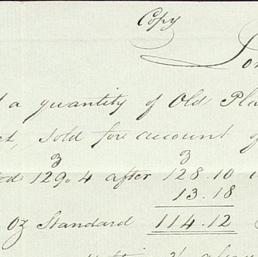 Copy
Lon
d a quantity of Old Pla
ct, sold for account of
3 3
od 129.4 after 128.10
13.18
Oz Standard 114.12